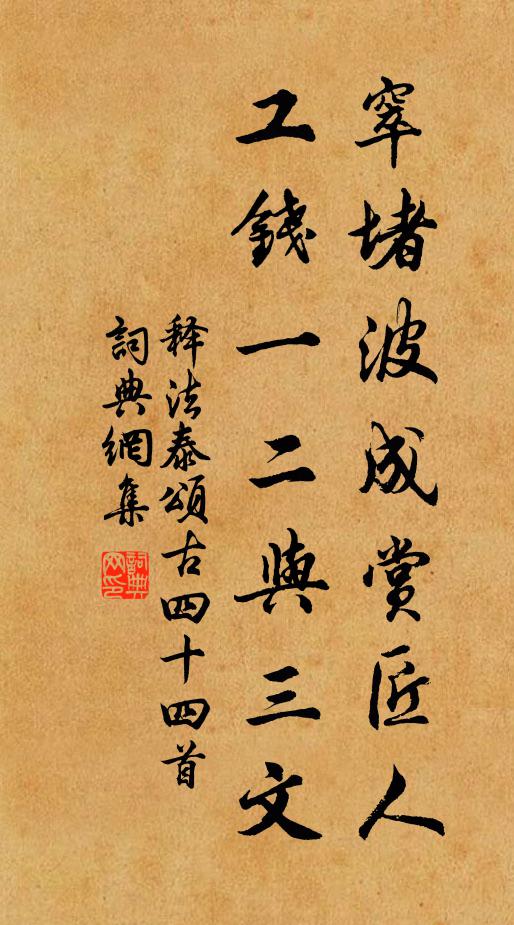 窣堵波成賞匠人
工錢一二與三文
释法泰頌古四十四首
詞典網集
詞典網印